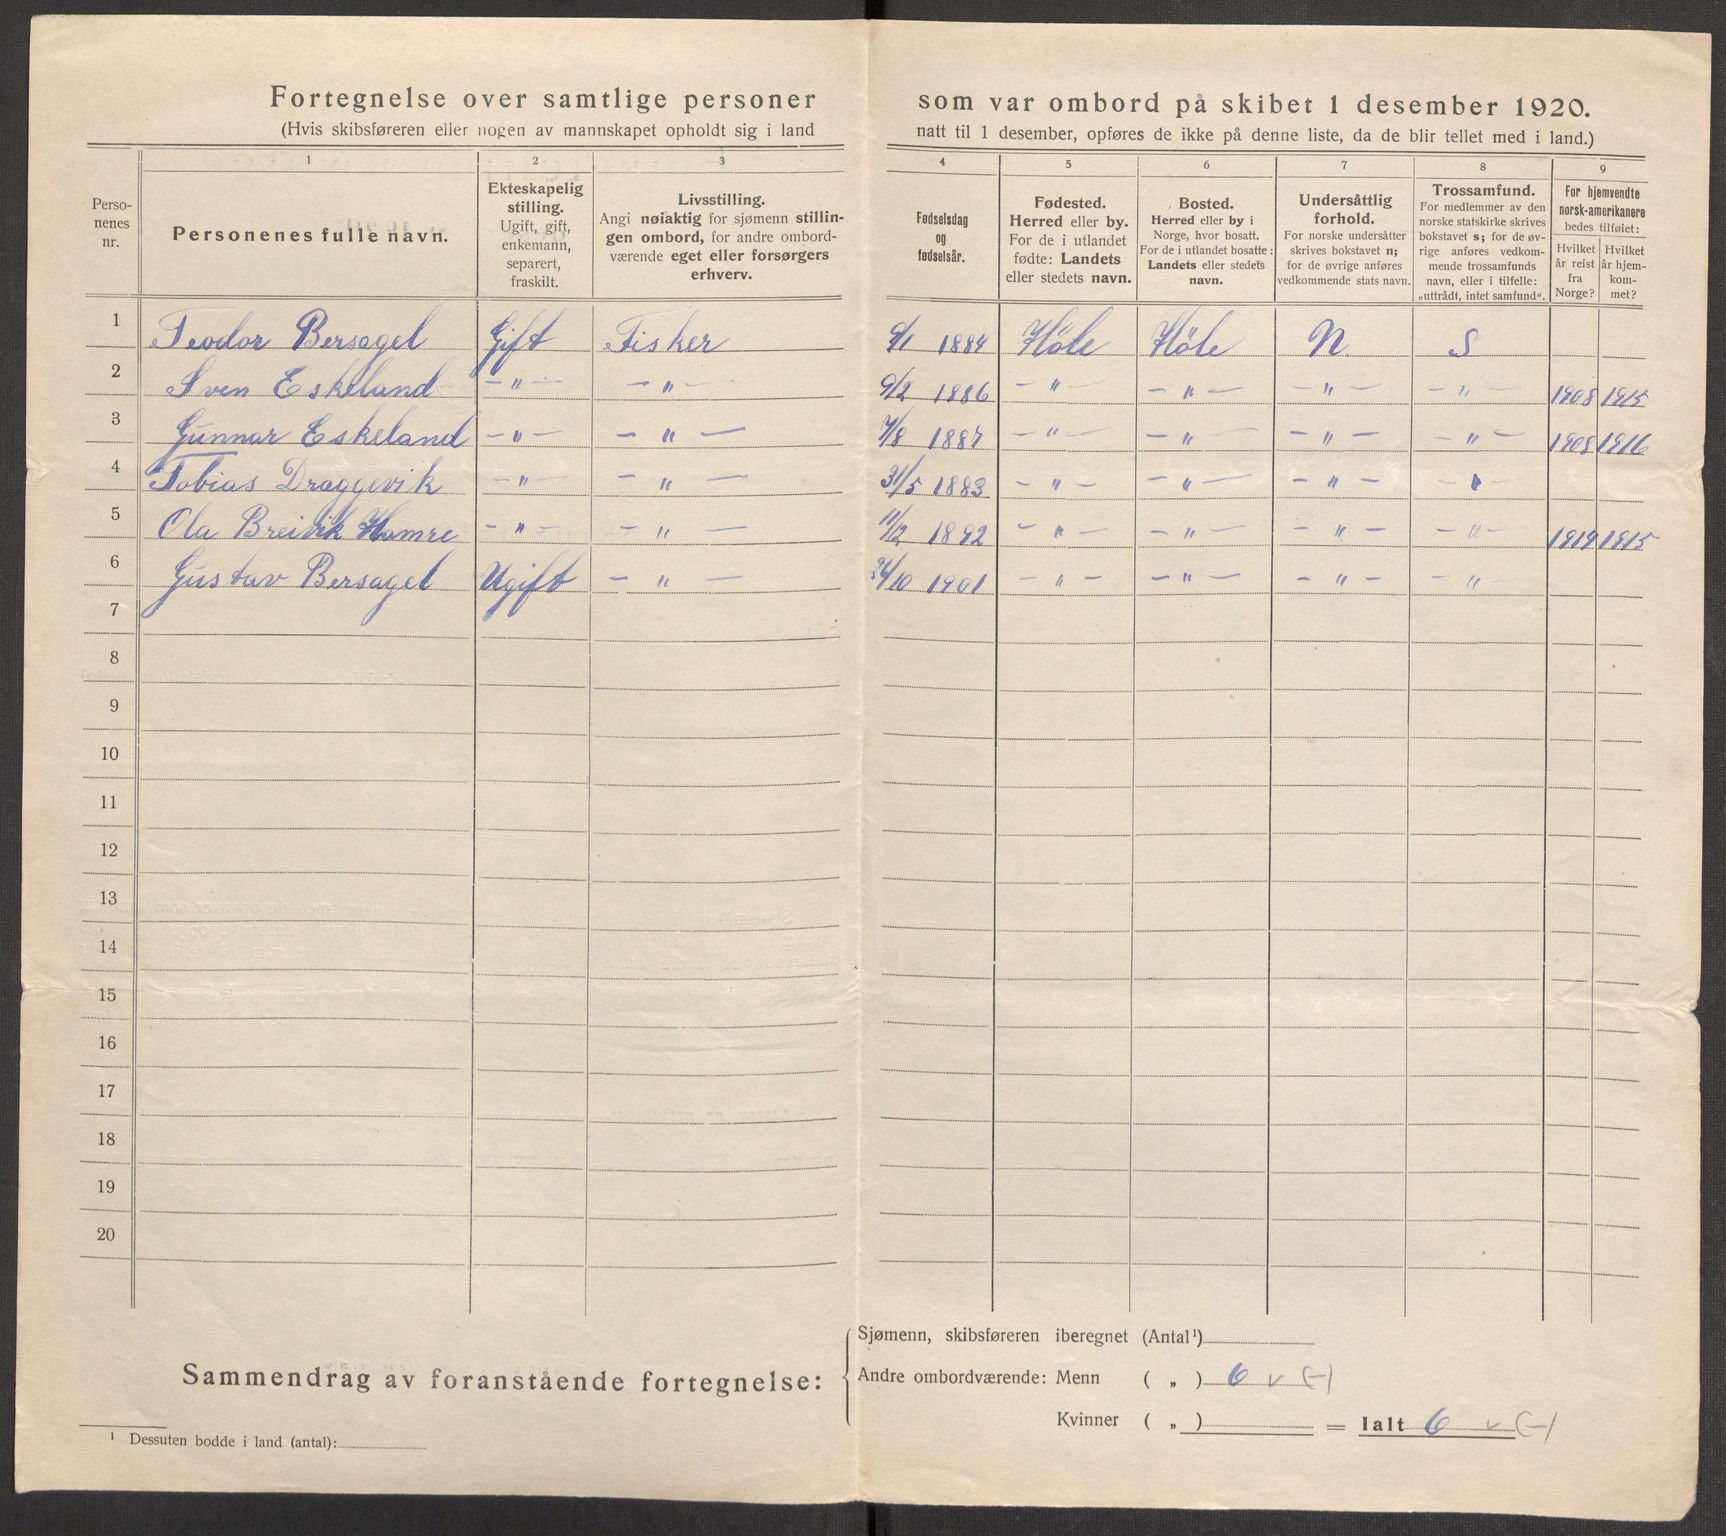 Fortegnelse over samtlige personer som var ombord på skibet 1 desember 1920.
(Hvis skibsføreren eller nogen av mannskapet opholdt sig i land natt til 1 desember, opføres de ikke på denne liste, da de blir tellet med i land.)
Perso-
nenes
nr.
1
Personenes fulle navn.
2
Ekteskapelig
stilling.
Ugift, gift,
enkemann,
separert,
fraskilt.
3
Livsstilling.
Angi nøiaktig for sjømenn stillin-
gen ombord, for andre ombord-
værende eget eller forsørgers
erhverv.
4
Fødselsdag
og
fødselsår.
5
Fødested.
Herred eller by.
For de i utlandet
fødte: Landets
eller stedets navn.
6
Bosted.
Herred eller by i
Norge, hvor bosatt.
For de i utlandet bosatte:
Landets eller stedets
navn.
7
Undersåttlig
forhold.
For norske undersåtter
skrives bokstavet n;
for de øvrige anføres
vedkommende stats navn.
8
Trossamfund.
For medlemmer av den
norske statskirke skrives
bokstavet s; for de øv-
rige anføres vedkom-
mende trossamfunds
navn, eller i tilfelle:
„uttrådt, intet samfund“.
9
For hjemvendte
norsk-amerikanere
bedes tilføiet:
Hvilket
år reist
fra
Norge?
Hvilket
år hjem-
kom-
met?
1 Teodor Bersagel Gift Fisker 1884 Höle Höle N. S
2 Sven Eskeland –"– –"– 9/2 1886 –"– –"– –"– –"– 1908 1915
3 Gunnar Eskeland –"– –"– 7/8 1887 –"– –"– –"– –"– 1908 1916
4 Tobias Draggevik –"– –"– 31/5 1883 –"– –"– –"– –"–
5 Ola Breivik Hamre –"– –"– 11/12 1892 –"– –"– –"– –"– 1919 1915
6 Gustav Bersagel Ugift –"– 24/10 1901 –"– –"– –"– –"–
7
8
9
10
11
12
13
14
15
16
17
18
19
20
Sammendrag av foranstående fortegnelse:
Sjømenn, skibsføreren iberegnet (Antal¹)
Andre ombordværende: Menn ( „ ) 6 v (–)
Kvinner ( „ ) = Ialt 6 v (–)
¹ Dessuten bodde i land (antal):